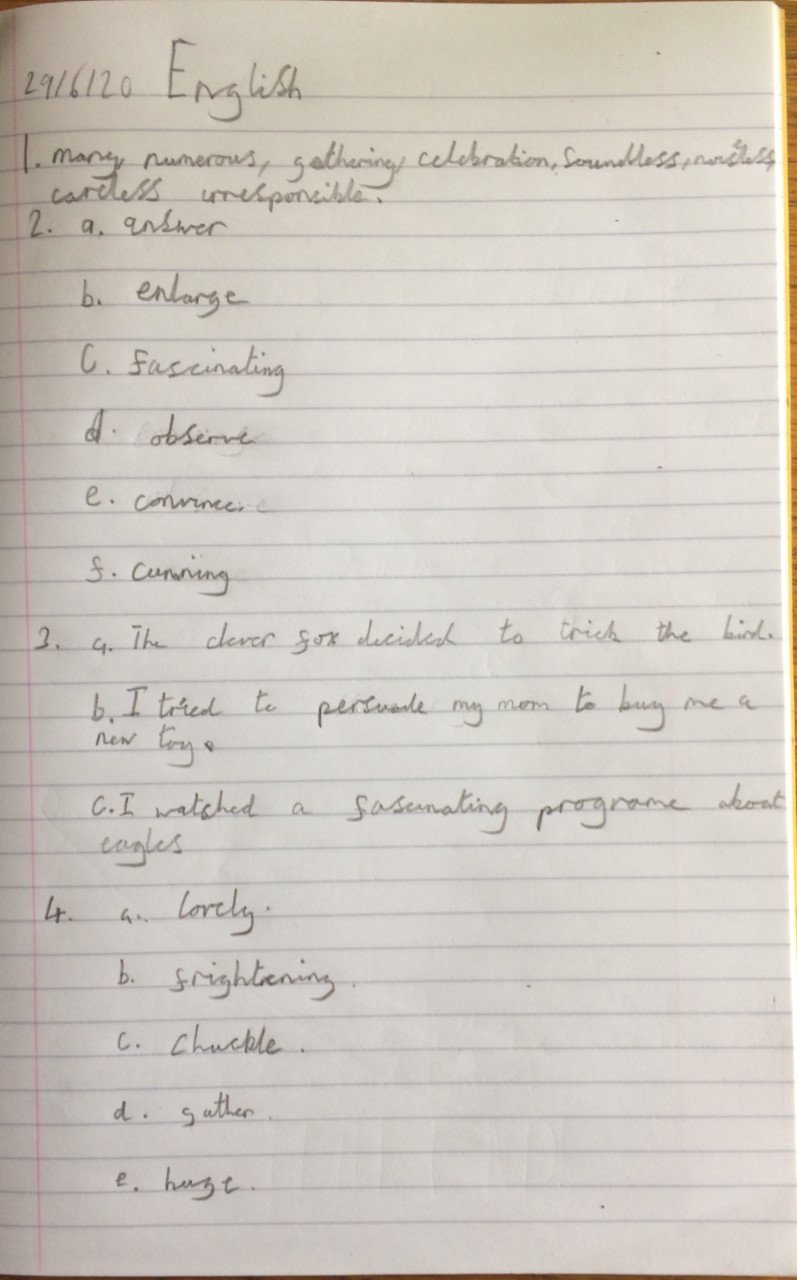 29/6/20 English
1. many, numerous, gathering, celebration, Soundless, noiseless,
careless irresponsible.
2. a. answer
b. enlarge
C. fascinating
d. observe
e. convince
f. cunning
3. a. The clever fox decided to trick the bird.
b. I tried to persuade my mom to buy me a
new toy.
C. I watched a fascinating programe about
eagles
4. a. lovely.
b. frightening.
c. Chuckle.
d. gather.
e. huge.